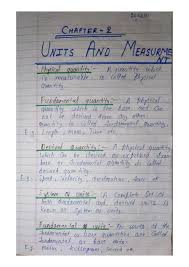 CHAPTER-2
UNITS AND MEASURMENT
Physical quantity:- A quantity which
is measurable is called physical
quantity.
Fundamental quantity:- A physical
quantity which is the base and can
not be derived from any other
is called fundamental quantity.
E.g. Length, mass, Time etc.
Derived quantity:- A physical quantity
which can be derived or expressed from
base or fundamental quantity is called
derived quantity.
E.g. Speed, Velocity, acceleration, force etc
System of units:- A complete set of
both fundamental and derived units is
known as system of units.
Fundamental units:- The units of the
fundamental or base quantities are called
fundamental or base units.
E.g. metre, killogram, second etc.